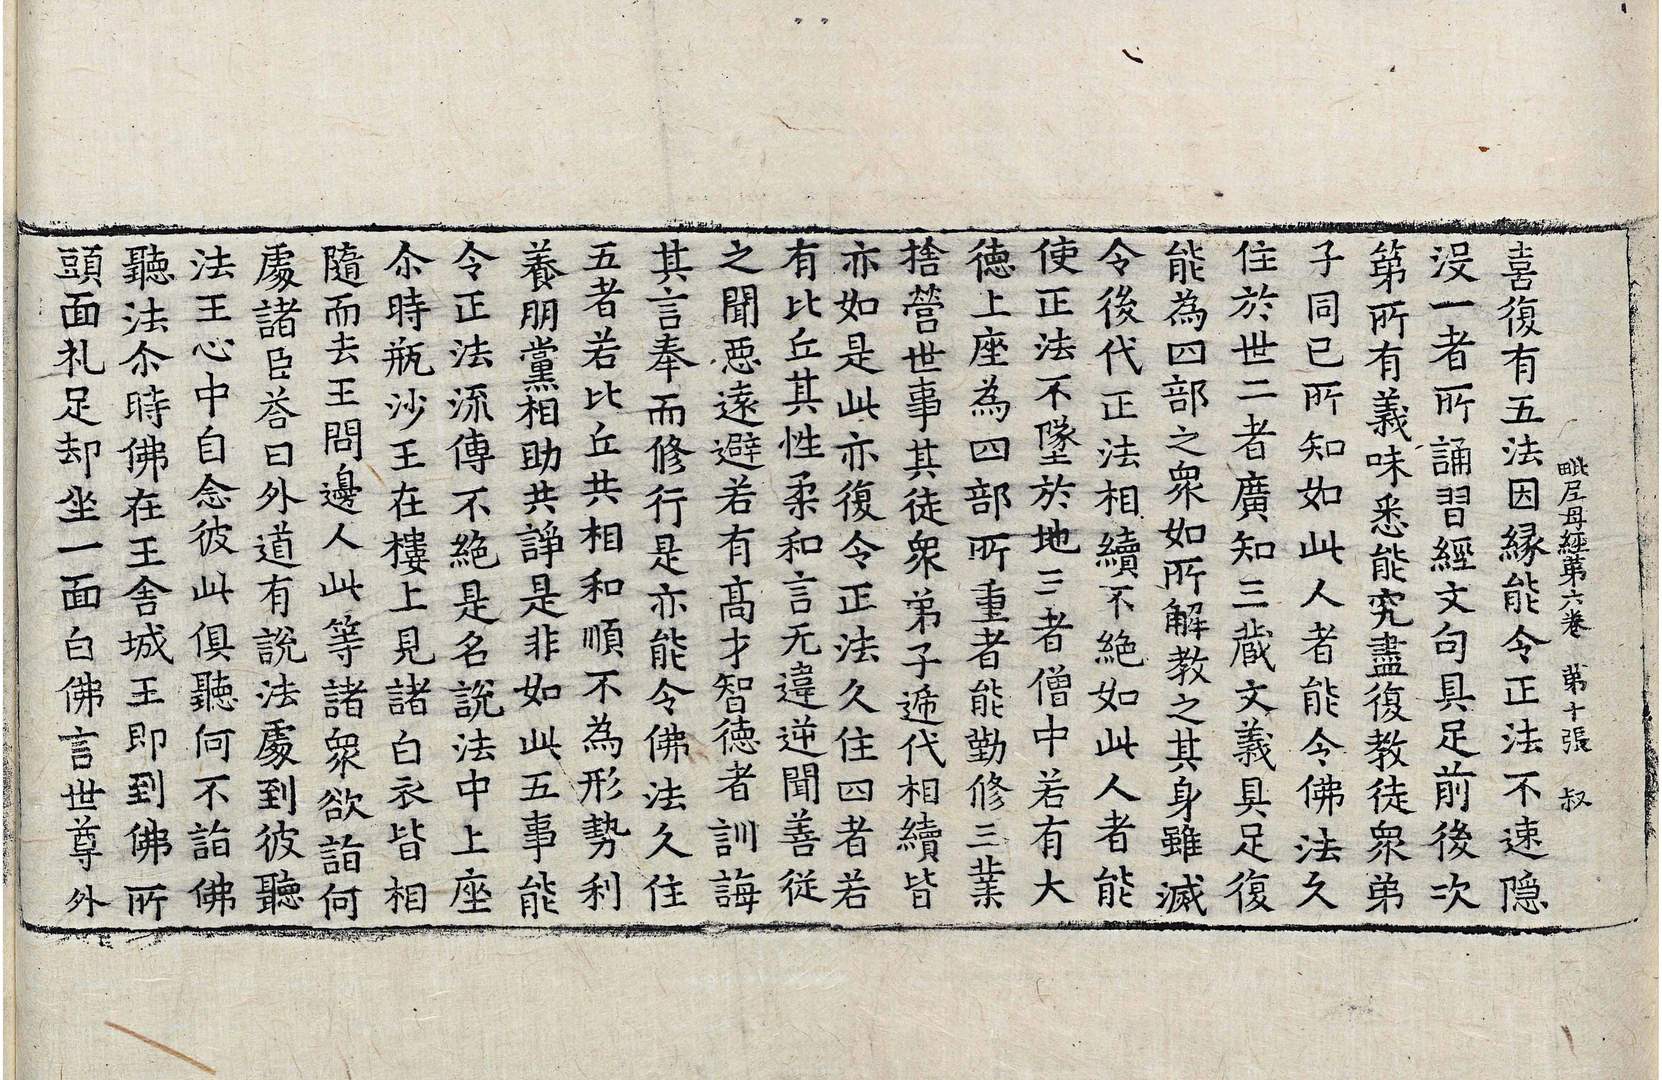 毗尼母經第六卷　第十張　叔
喜復有五法因緣能令正法不速隱
沒一者所誦習經文句具足前後次
第所有義味悉能究盡復教徒衆弟
子同已所知如此人者能令佛法久
住於世二者廣知三藏文義具足復
能為四部之衆如所解教之其身雖滅
令後代正法相續不絕如此人者能
使正法不墜於地三者僧中若有大
德上座為四部所重者能勤修三業
捨營世事其徒衆弟子遞代相續皆
亦如是此亦復令正法久住四者若
有比丘其性柔和言无違逆聞善從
之聞惡遠避若有高才智德者訓誨
其言奉而修行是亦能令佛法久住
五者若比丘共相和順不為形勢利
養朋黨相助共諍是非如此五事能
令正法流傳不絕是名說法中上座
尒時瓶沙王在樓上見諸白衣皆相
隨而去王問邊人此等諸衆欲詣何
處諸臣荅曰外道有說法處到彼聽
法王心中自念彼此俱聽何不詣佛
聽法尒時佛在王舍城王即到佛所
頭面礼足却坐一面白佛言世尊外